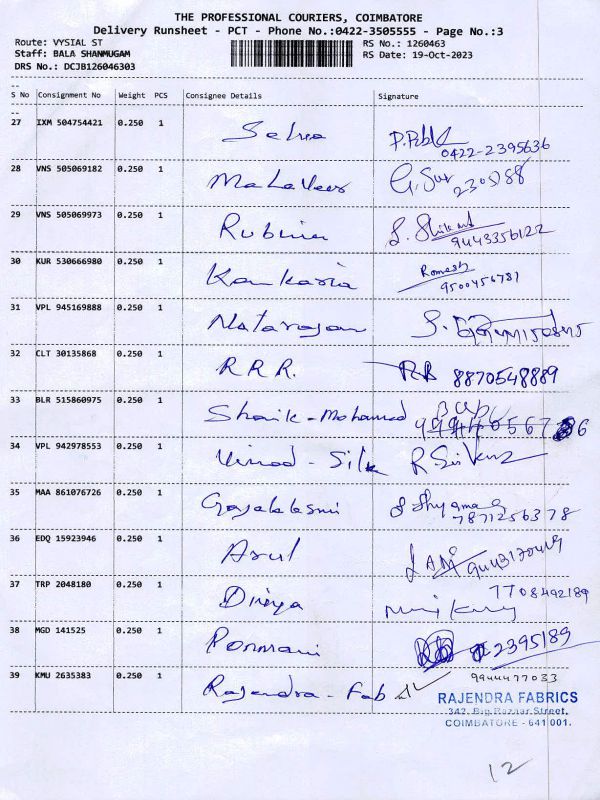 THE PROFESSIONAL COURIERS, COIMBATORE
Delivery Runsheet - PCT - Phone No.:0422-3505555 - Page No.:3
Route: VYSIAL ST
RS No.: 1260463
Staff: BALA SHANMUGAM
RS Date: 19-Oct-2023
DRS No.: DCJB126046303
S No Consignment No Weight PCS Consignee Details Signature
27 IXM 504754421 0.250 1 Selva
0422-2395636
28 VNS 505069182 0.250 1 Mahaveer
29 VNS 505069973 0.250 1 Rubina
9443356122
30 KUR 530666980 0.250 1 Kankaria Romesh
9500456781
31 VPL 945169888 0.250 1 Natarajan
32 CLT 30135868 0.250 1 R.R.R. RB 8870548889
33 BLR 515860975 0.250 1 Shaik - Mohamed
34 VPL 942978553 0.250 1 Vinod - Silk
35 MAA 861076726 0.250 1 Gajalaksmi
7871256378
36 EDQ 15923946 0.250 1 Arul
37 TRP 2048180 0.250 1 Divya 7708492189
38 MGD 141525 0.250 1 Ponmani 2395189
39 KMU 2635383 0.250 1 Rajendra - Fab
9944477033
RAJENDRA FABRICS
342, Big Bazaar Street,
COIMBATORE - 641 001.
12